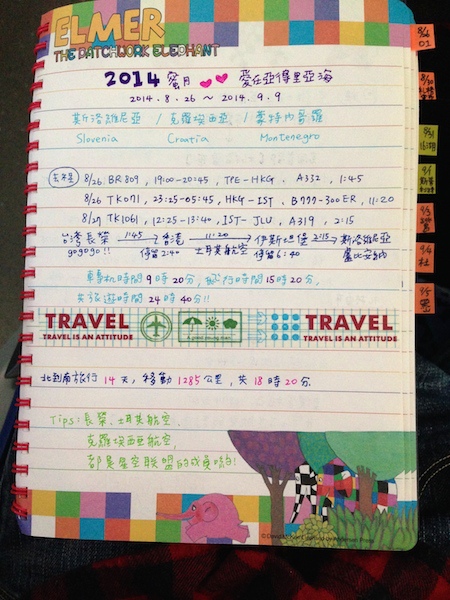 ELMER
THE PATCHWORK ELEPHANT
2014 蜜月 愛在亞得里亞海
2014.8.26 ~ 2014.9.9
斯洛維尼亞 / 克羅埃西亞 / 蒙特內哥羅
Slovenia Croatia Montenegro
8/26 BR809, 19:00-20:45, TPE-HKG, A332, 1:45
8/26 TK071, 23:25-05:45, HKG-IST, B777-300ER, 11:20
8/27 TK1061, 12:25-13:40, IST-JLU, A319, 2:15
台灣長榮 1:45 香港 11:20 伊斯坦堡 2:15 斯洛維尼亞
gogogo!! 停留2:40 土耳其航空 停留6:40 盧比安納
轉機時間9時20分, 飛行時間15時20分,
共旅遊時間24時40分!!
TRAVEL TRAVEL
TRAVEL IS AN ATTITUDE TRAVEL IS AN ATTITUDE
北到南旅行14天, 移動1285公里, 共18時20分
Tips: 長榮、土耳其航空、
克羅埃西亞航空
都是星空聯盟的成員喲!
8/26
01
8/30
8/31
9/1
9/3
9/4
杜
9/5